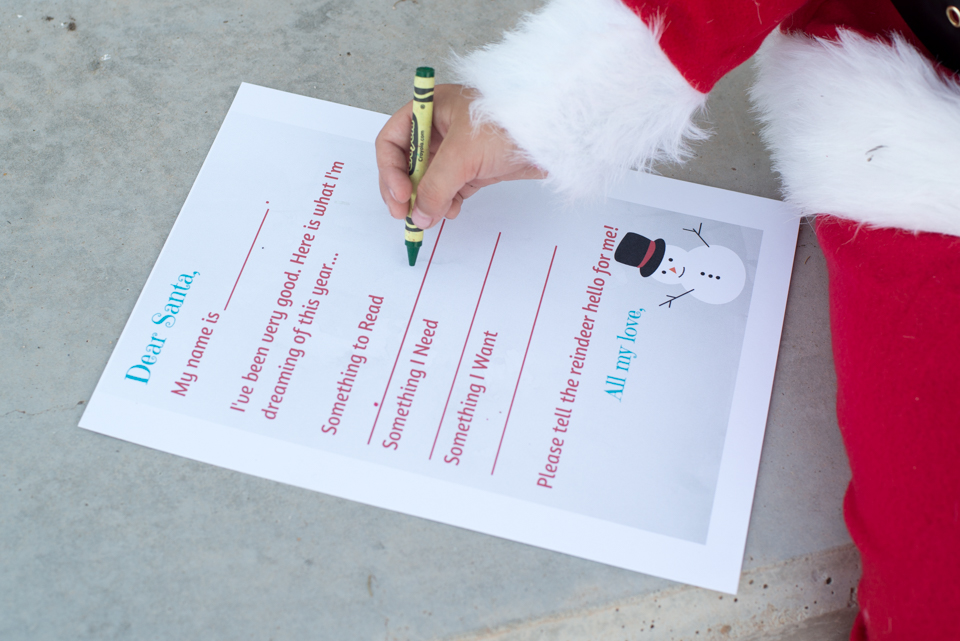 Dear Santa,
My name is ____________.
I've been very good. Here is what I'm
dreaming of this year...
Something to Read
Something I Need
Something I Want
Please tell the reindeer hello for me!
All my love,
Crayola.com